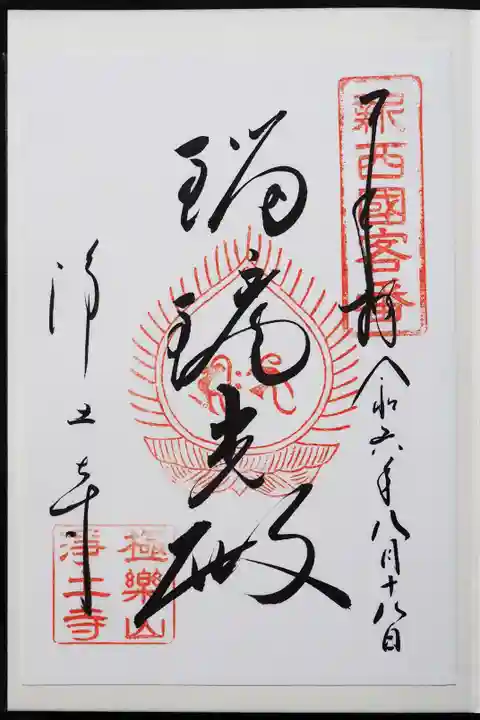 新西國客番
奉拝
令和六年八月十八日
瑠璃光殿
浄土寺
極樂山
淨土寺